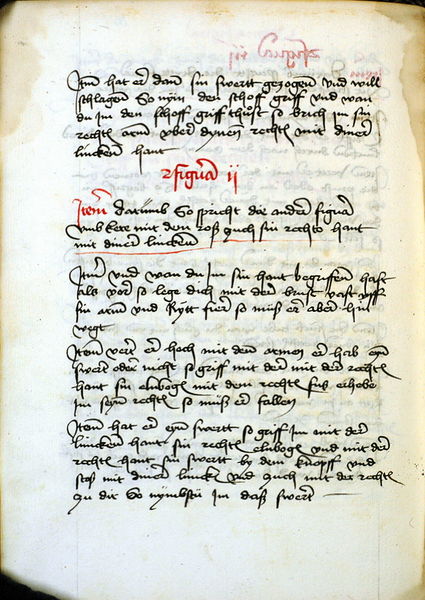 Item hat er dann sin swertt gezogenn und will
schlagenn So nym den schoff griff und wan
du im den schoff griff thust so brich im sin
rechtn arm vber dynen rechtn mit diner
lincken hant
figura ii
Item darumb So spricht die ander figura
umbkere mit dem roß zuch sin rechte hant
mit diner lincken
Item und wan du im sin hant begriffenn hast
als vor so lege dich mit der brust vast uff
sin arm und Rytt fier so muß er aber hin
wegt
Item vert er hoch mit den armen er hab eyn
swert oder nicht so griff mit der mit der rechtn
hant sin elnbogn mit dem rechtn fuß erhebe
im seyn rechtn so muß er fallen
Item hat er eyn swertt so griff im mit der
lincken hant sin rechtn elnbogn und mit der
rechtn hant sin swertt by dem knopff und
stoß mit diner linckn und zuch mit der rechtn
zu dir So nymbstu im daß swert